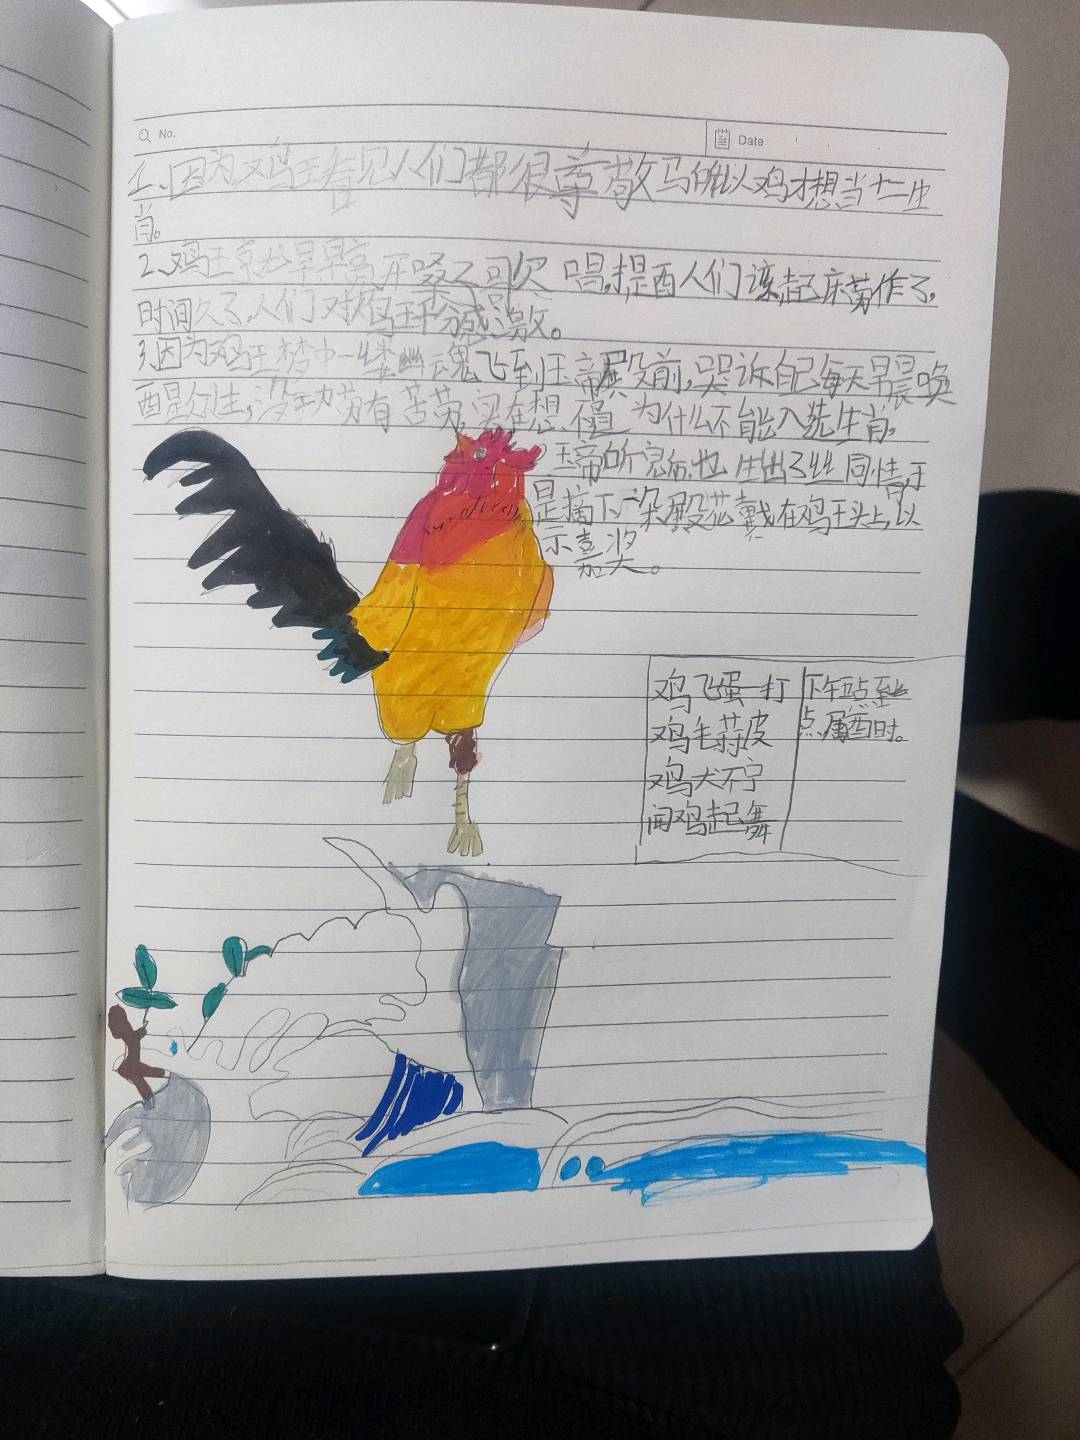 No.
Date
1、因为鸡王看见人们都很尊敬马所以鸡才想当十二生
肖。
2、鸡王早早亮开嗓子唱,提酉人们该起床劳作了,
时间久了,人们对鸡王十分感激。
3、因为鸡王梦中一缕幽魂飞到玉帝殿前,哭诉自己每天早晨唤
酉是众生,没功劳有苦劳,实在想不通为什么不能入选生肖,
玉帝听完后也生出了丝同情,于
是摘下一朵殿花戴在鸡王头上,以
示嘉奖。
鸡飞蛋一打
鸡毛蒜皮
鸡犬不宁
闻鸡起舞
下午五点至七
点属酉时。